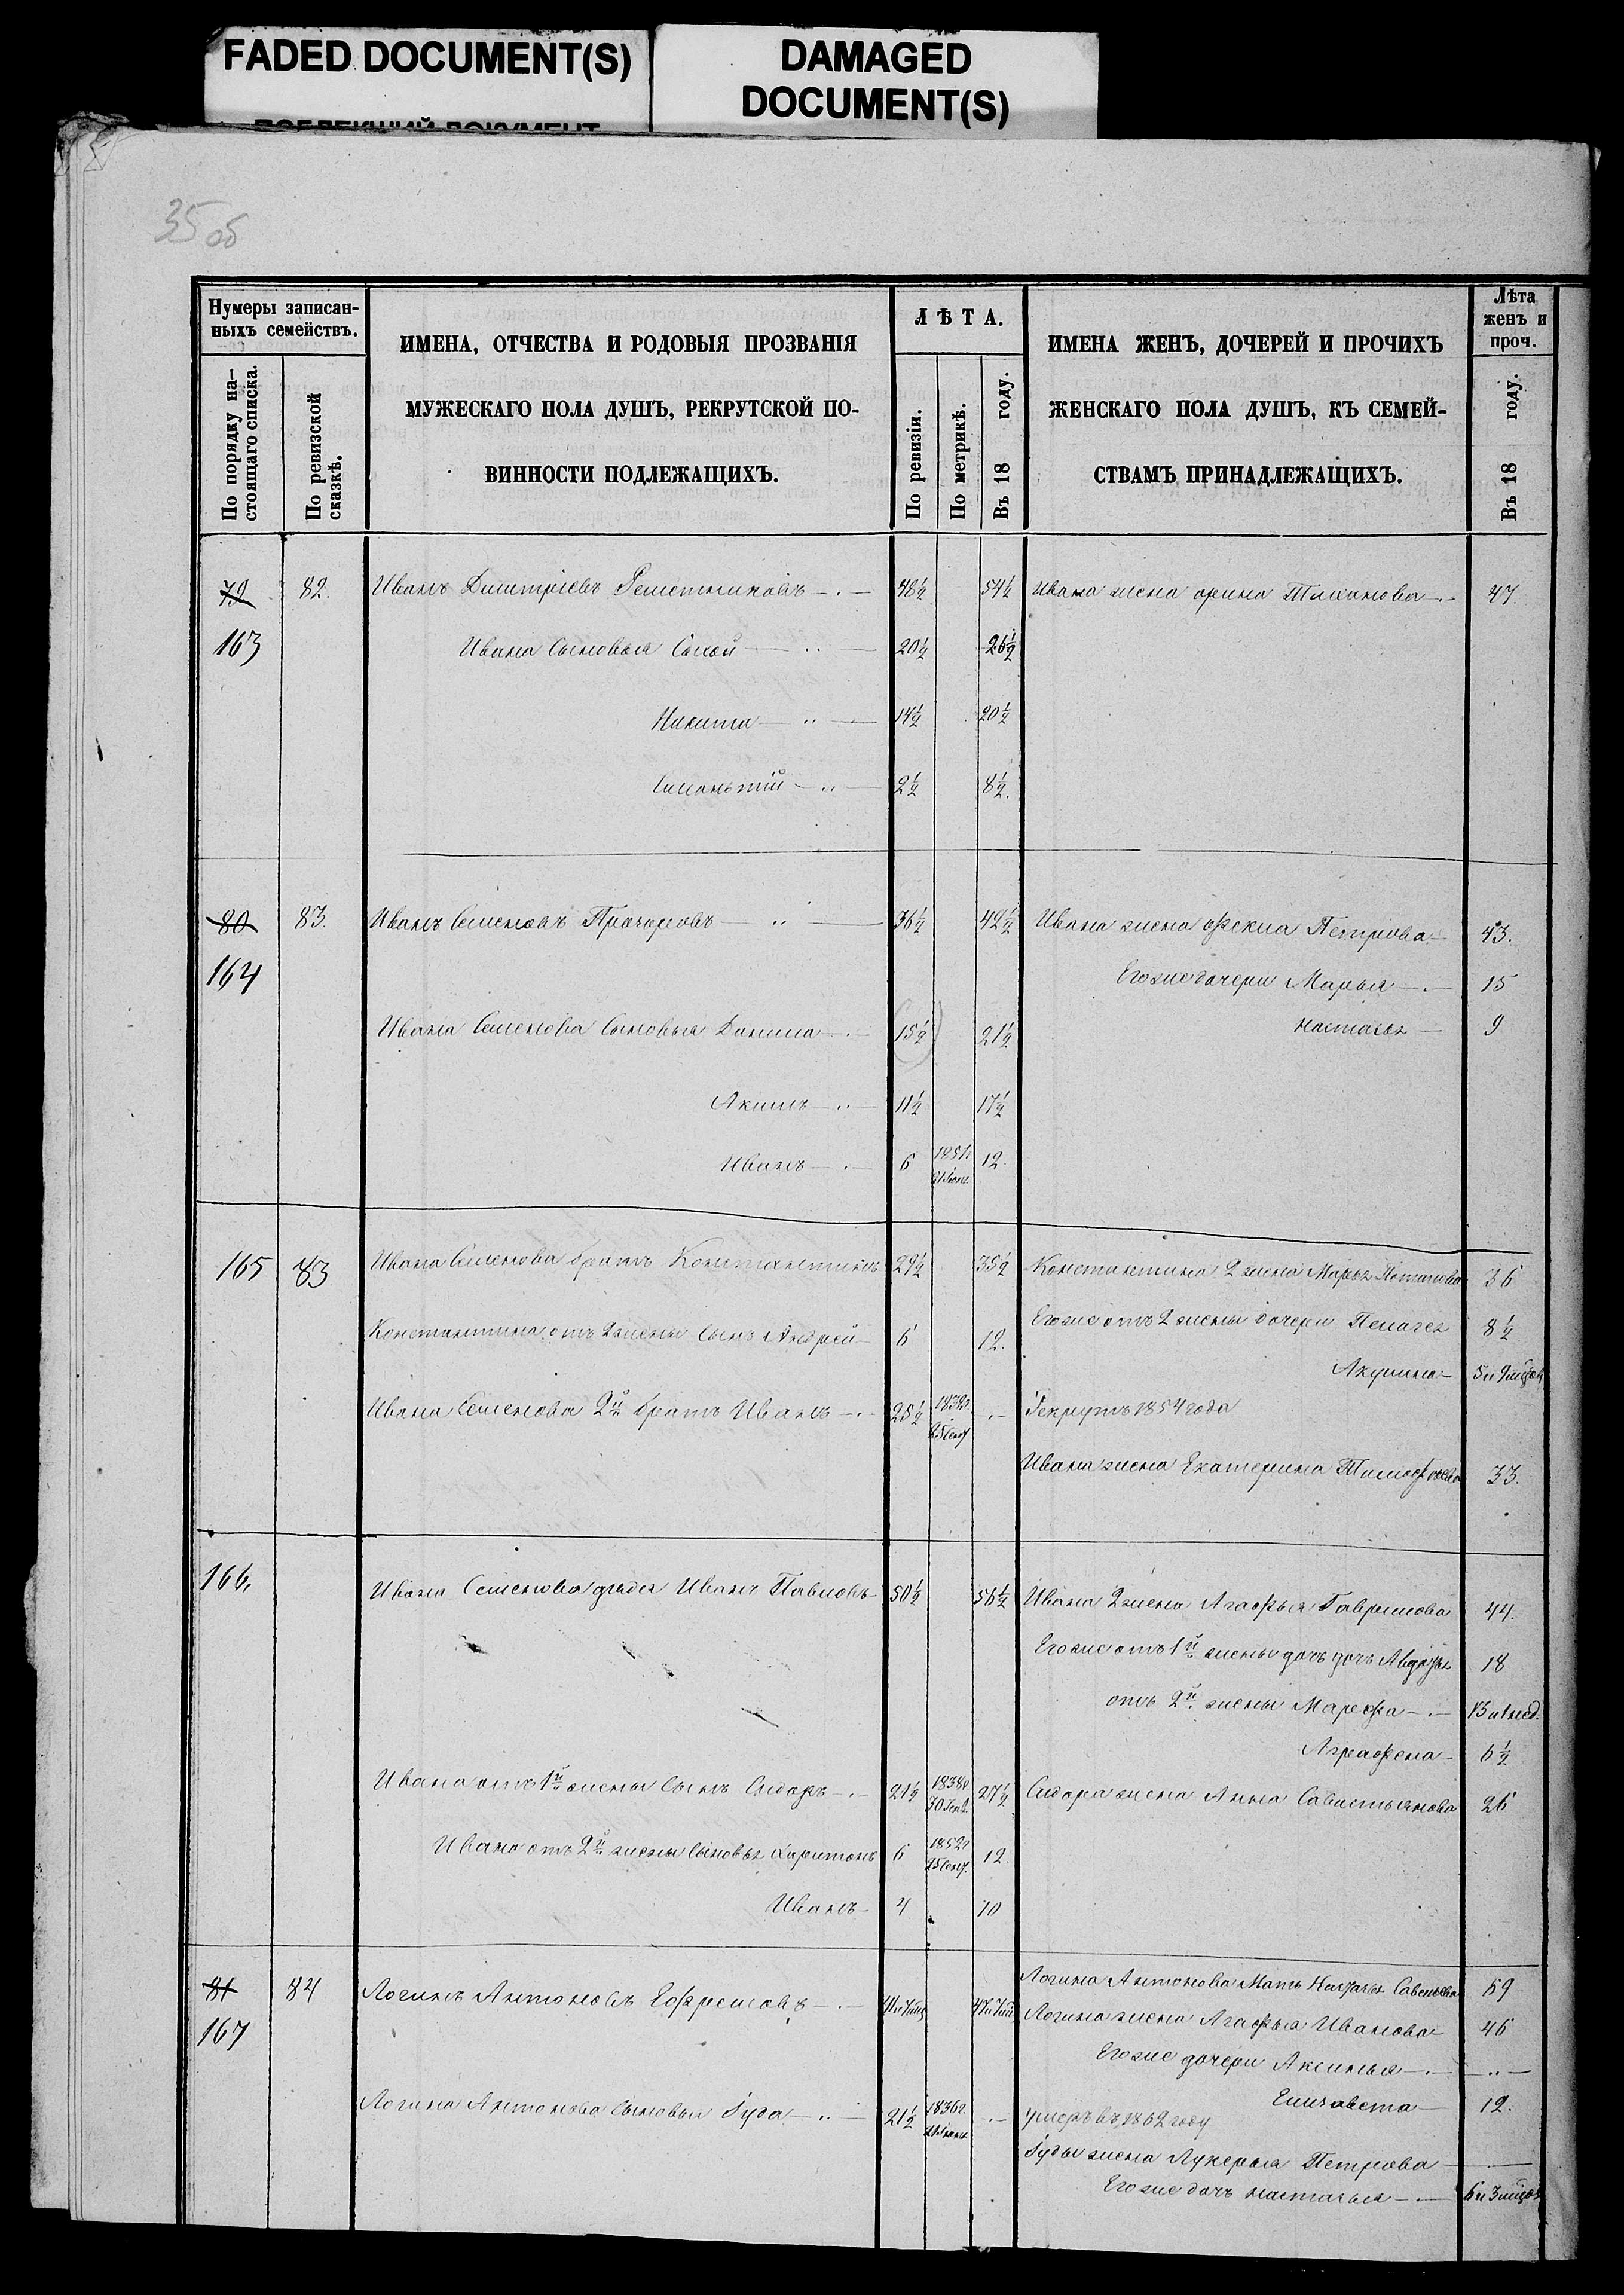 FADED DOCUMENT(S)
DAMAGED
DOCUMENT(S)
35 об
Нумеры записан-
ныхъ семействъ.
По порядку на-
стоящаго списка.
По ревизской
сказкѣ.
ИМЕНА, ОТЧЕСТВА И РОДОВЫЯ ПРОЗВАНІЯ
МУЖЕСКАГО ПОЛА ДУШЪ, РЕКРУТСКОЙ ПО-
ВИННОСТИ ПОДЛЕЖАЩИХЪ.
ЛѢТА.
По ревизіи.
По метрикѣ.
Въ 18 году.
ИМЕНА ЖЕНЪ, ДОЧЕРЕЙ И ПРОЧИХЪ
ЖЕНСКАГО ПОЛА ДУШЪ, КЪ СЕМЕЙ-
СТВАМЪ ПРИНАДЛЕЖАЩИХЪ.
Лѣта
женъ и
проч.
Въ 18 году.
79 82. Иванъ Дмитріевъ Решетниковъ 48½ 54½ Ивана жена орина 47.
163 Ивана Сыновья Сысой 20½ 26½
Никита 14½ 20½
2½ 8½.
80 83. Иванъ Семеновъ Прохоровъ 36½ 42½ Ивана жена офекла Петрова 43.
164 Егоже дочери Марья 15
Ивана Семенова Сыновья Данила 15½ 21½ настасья 9
Акимъ 11½ 17½
Иванъ 6 1851г. 12.
165 83 Ивана Семенова братъ Константинъ 29½ 35½ Константина 2 жена Марья Потапова 36
Константина отъ 2 жены сынъ Андрей 6 12. Егоже отъ 2 жены дочери Пелагея 8½
Акулина 5 и 9 мѣсяц
Ивана Семенова 2й братъ Иванъ 25½ 1832г. 25 Сент. Рекрутъ 1854 года
Ивана жена Екатерина Тимофѣева 33.
166. Ивана Семенова дядя Иванъ Павловъ 50½ 56½ Ивана 2 жена Агафья Гаврилова 44.
Егоже отъ 1й жены дочь дочь Авдотья 18
отъ 2й жены Марефа 13 и 1 нед.
Аграфена 6½
Ивана отъ 1й жены Сынъ Сидоръ 21½ 1838г. 30 Генв. 27½ Сидора жена Анна Савостьянова 26
Ивана отъ 2й жены Сыновья Харитонъ 6 1852г. 25 Сент. 12.
Иванъ 4 10
81 84 Логинъ Антоновъ Ефремовъ Логина Антонова Мать Наталья Савельева 69
167 Логина жена Агафья Иванова 46
Егоже дочери Аксинья
Елизавета 12.
Логина Антонова Сыновья Іуда 21½ 1836г. умеръ въ 1862 году
Іуды жена Лукерья Петрова
Егоже дочь настасья 6 и 3 мѣсяц